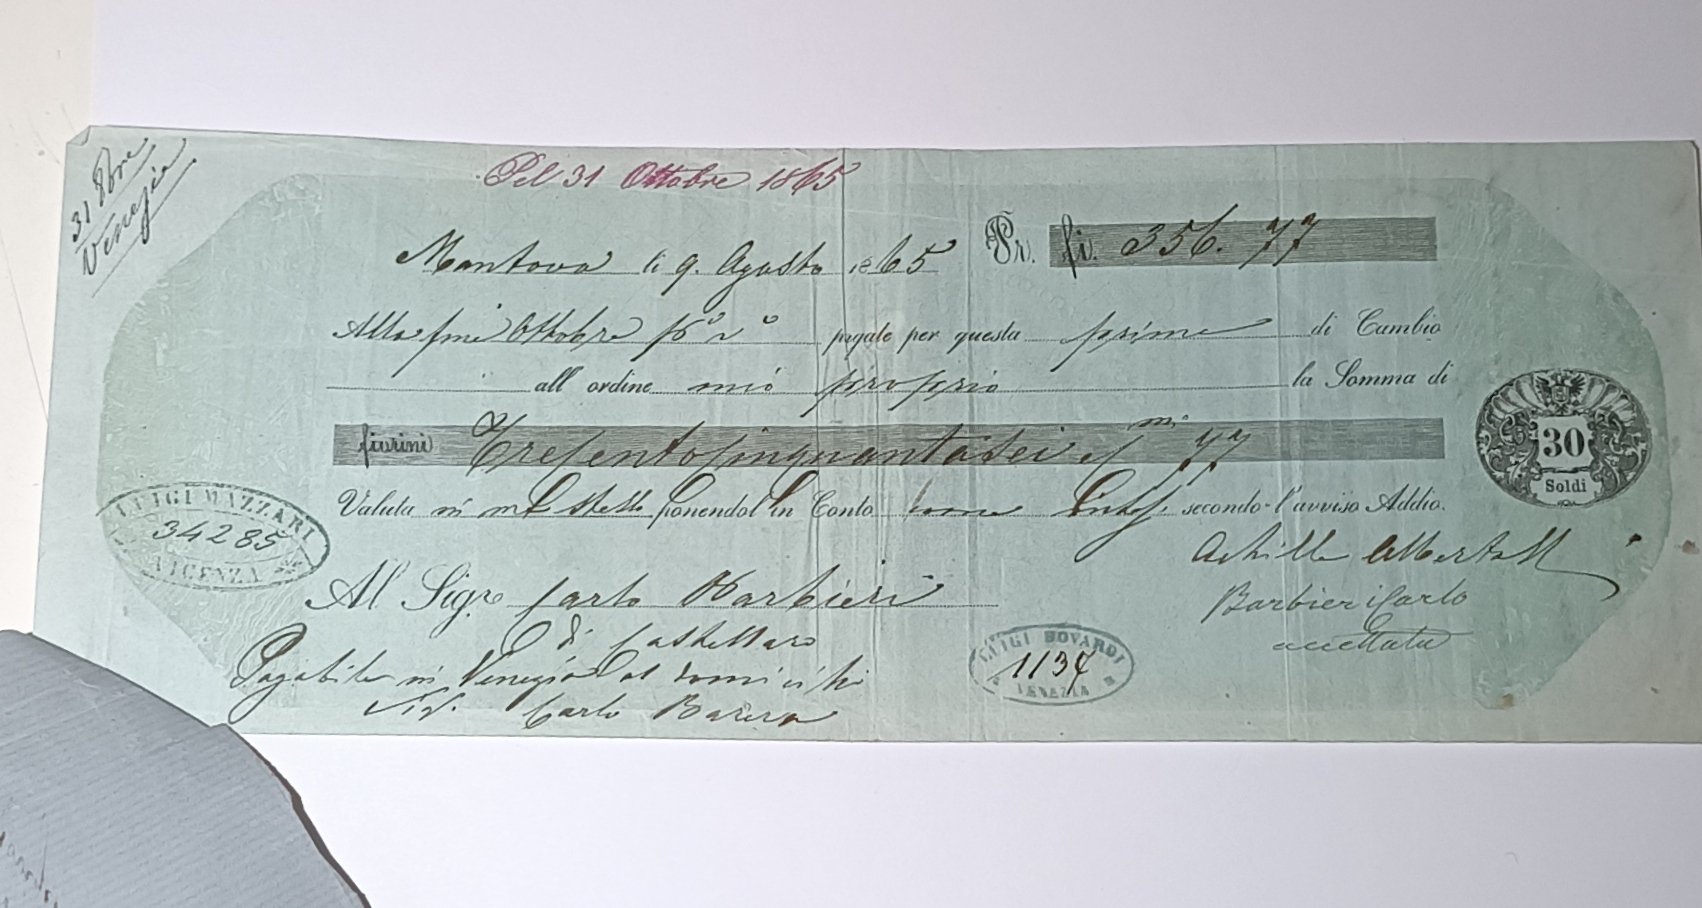 31 8bre
Venezia
Pel 31 Ottobre 1865
Mantova li 9. Agosto 1865 Pr. fi. 356. 77
Alla fine Ottobre pº vº pagate per questa prima di Cambio
all' ordine mio proprio la Somma di
fiorini Trecentocinquantasei e/ 77
Valuta in me stesso ponendol in Conto come secondo l'avviso Addio.
LUIGI MAZZARI
34285
VICENZA
Achille
Al Sigre Carlo Barbieri
Barbieri Carlo
accettata
di Castellaro
Pagabile in Venezia al domicilio
Carlo Barera
LUIGI BOVARDI
1137
VENEZIA
30
Soldi